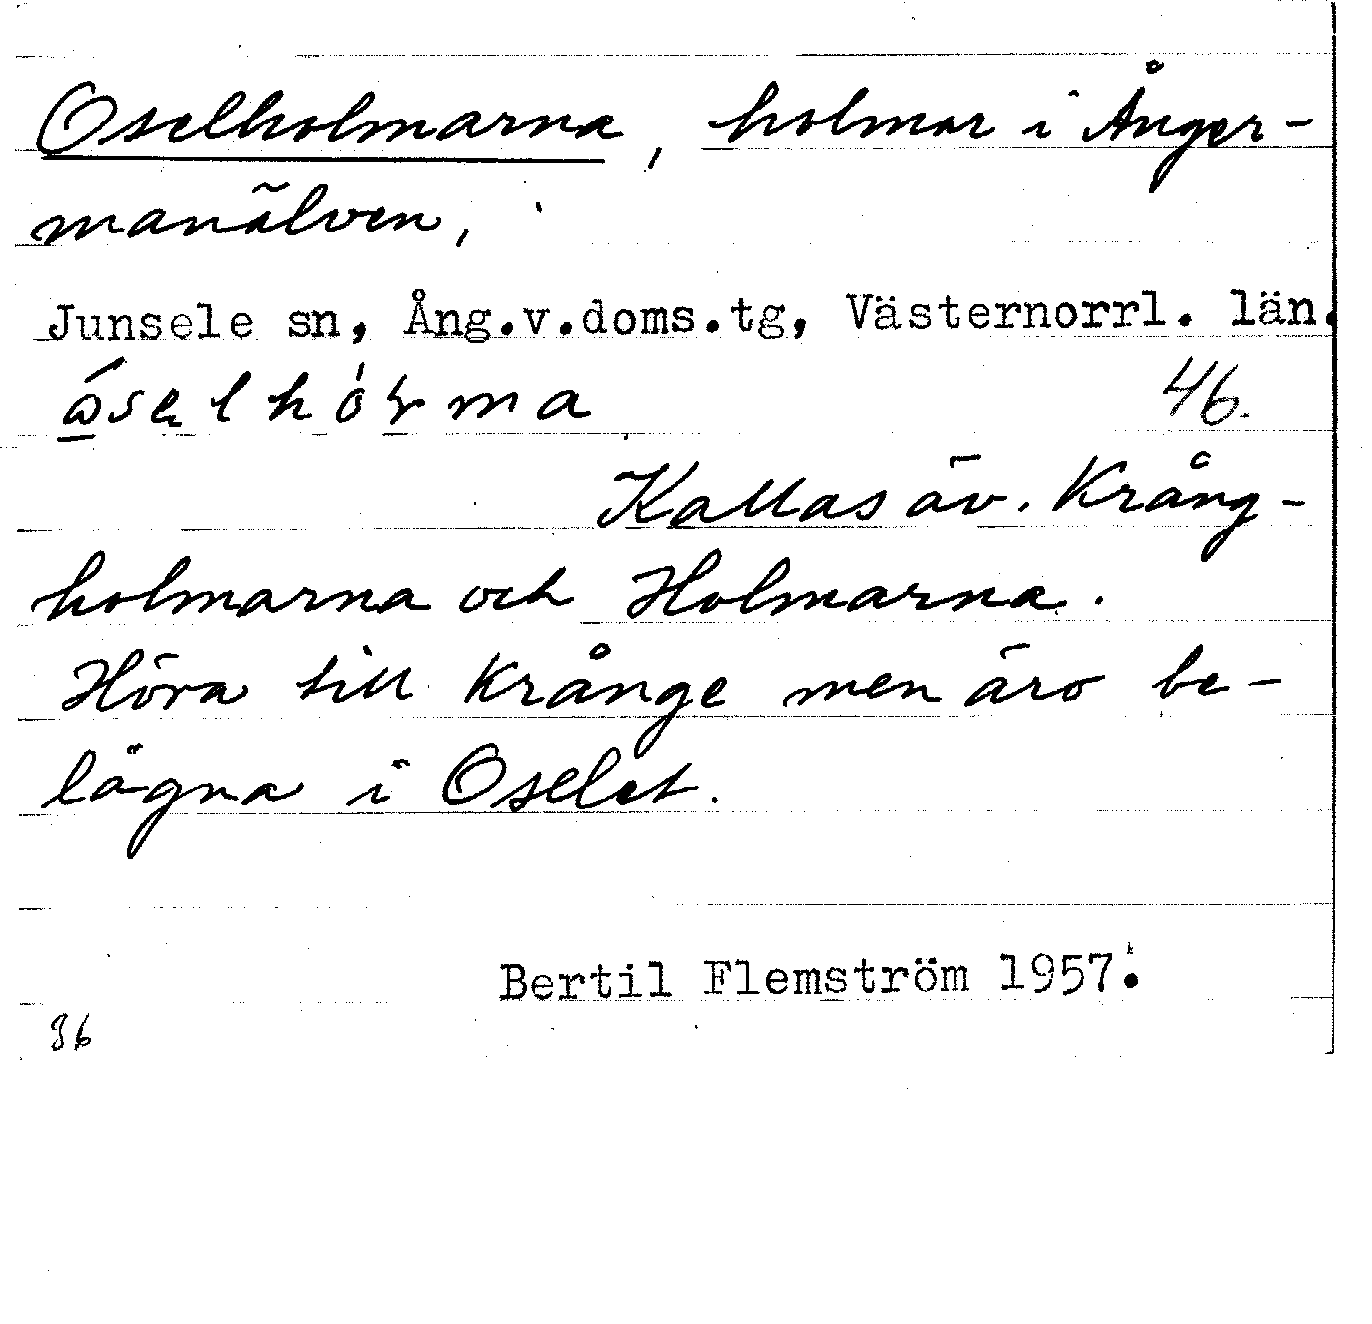 Oselholmarna, holmar i Ånger-
manälven,
Junsele sn, Ång.v.doms.tg, Västernorrl. län.
46.
Kallas äv. Krång-
holmarna och Holmarna.
Höra till Krånge men äro be-
lägna i Oselet.
Bertil Flemström 1957.
36